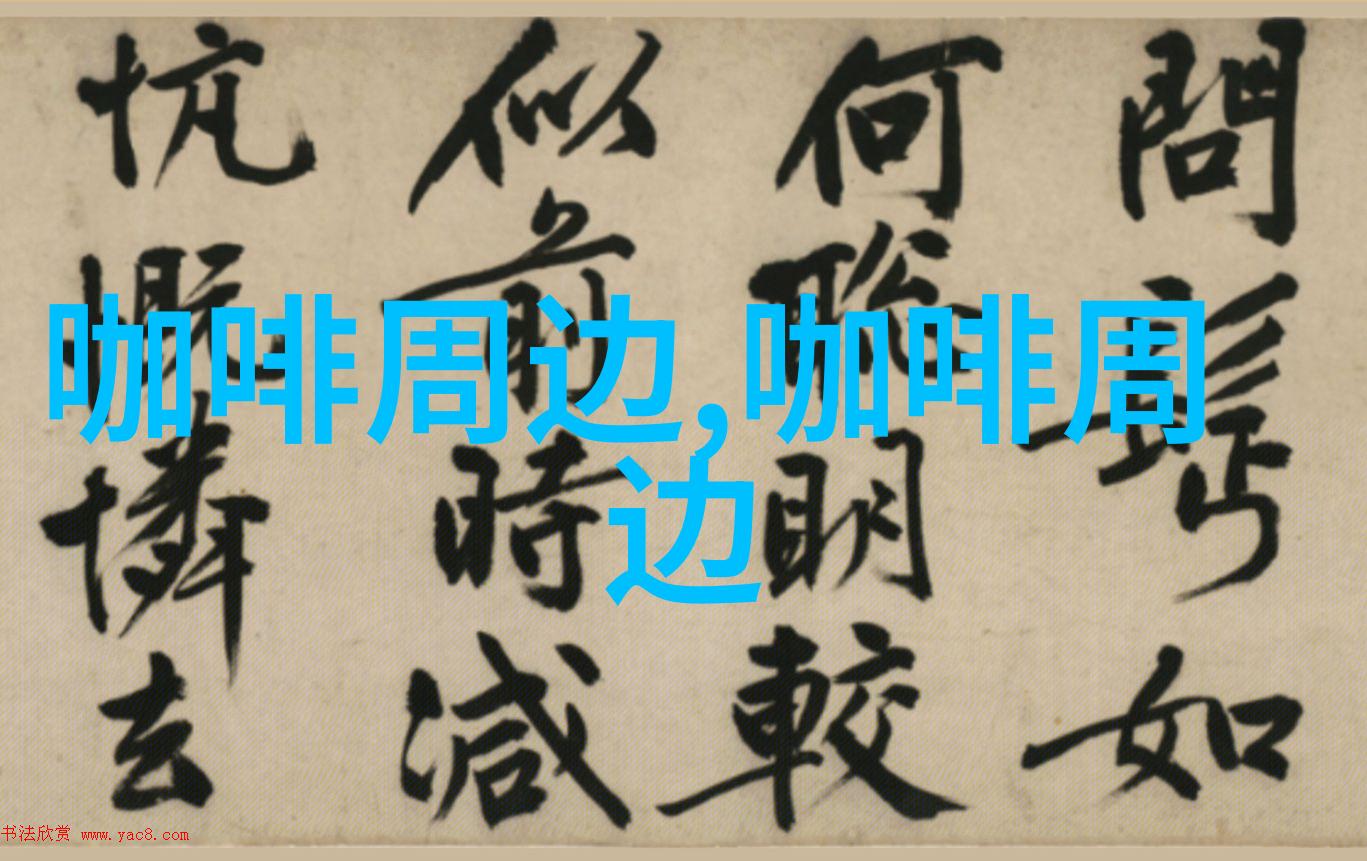 咖啡周边,咖啡周
边
問如
何聡明較
似前時減
忼慨憐去
书法欣赏 www.yac8.com